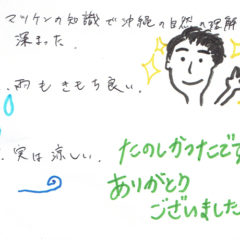 マツケンの知識で沖縄の自然の理解
深まった.
.雨もきもち良い.
.実は涼しい.
たのしかったです
ありがとり
ございました